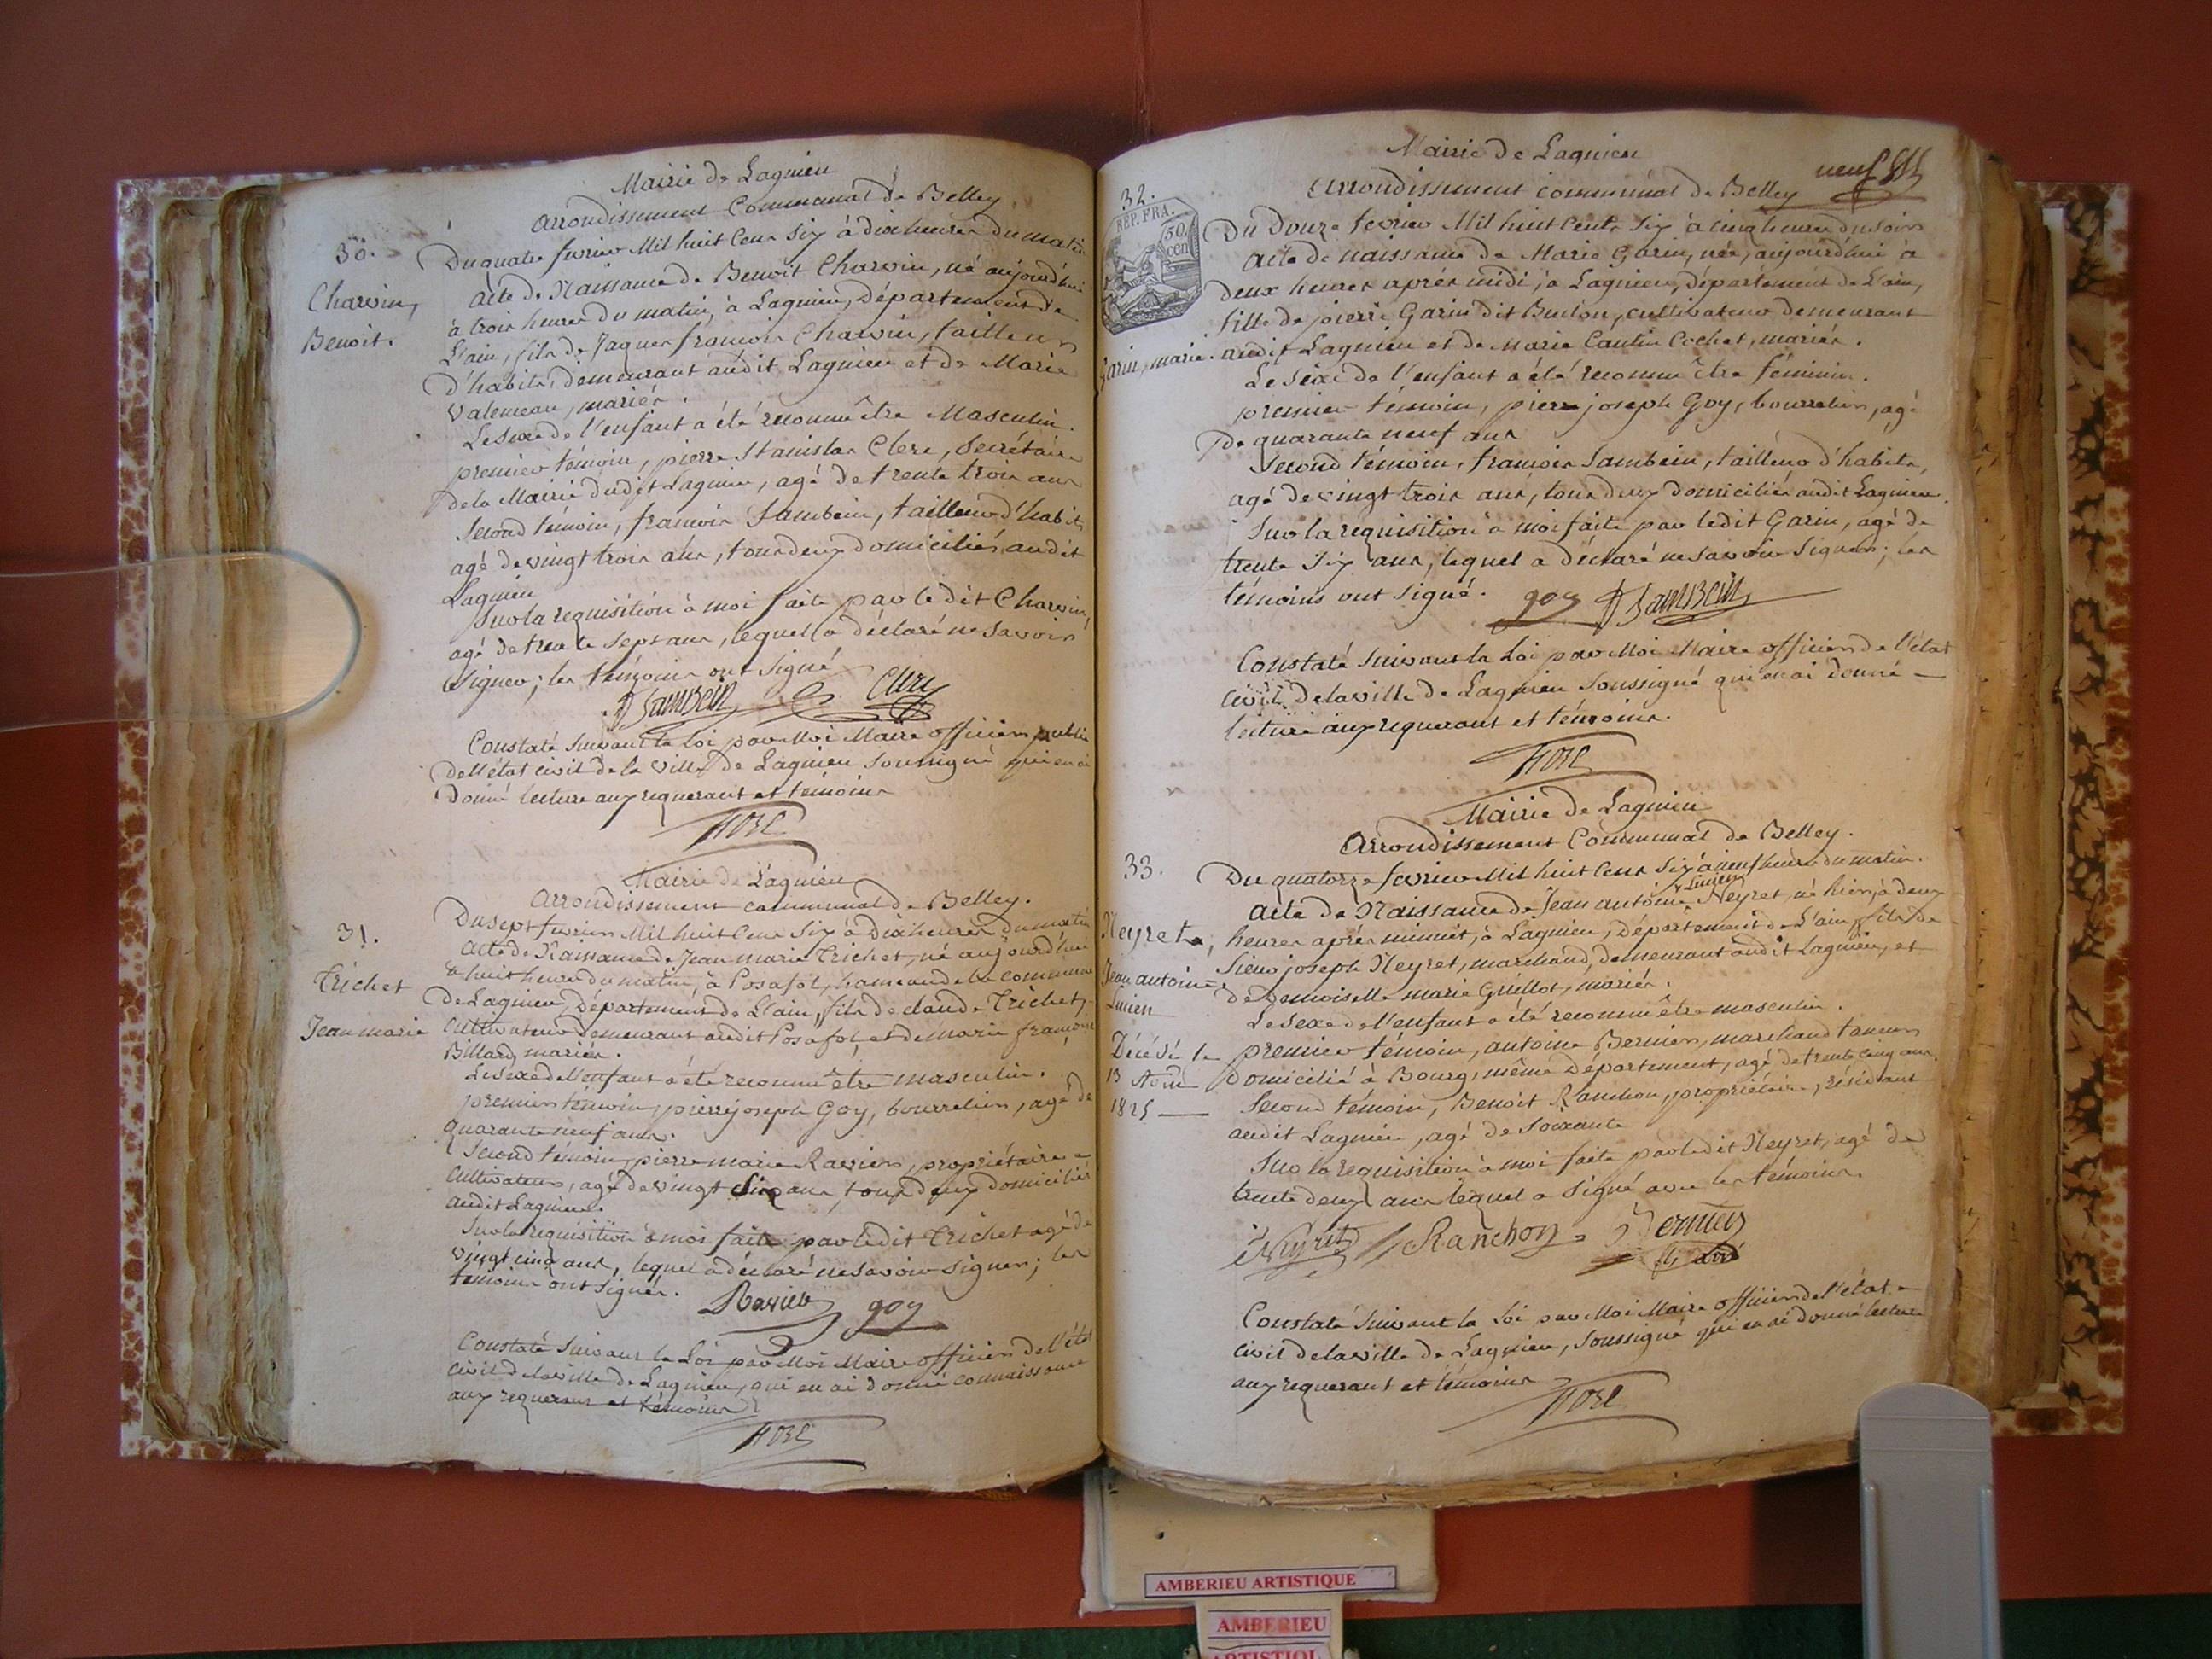 Mairie de Lagnieu
Arrondissement Communal de Belley
30.
Charvin,
Benoit.
Du quatre fevrier Mil huit Cent Six à dix heures du matin
acte de Naissance de Benoît Charvin, né aujourd'hui
à trois heures du matin, à Lagnieu, Département de
L'ain, fils de Jaques françois Charvin, tailleur
d'habits, demeurant audit Lagnieu et de Marie
mariés.
Le Sexe de l'enfant a été reconnu être Masculin.
premier témoin, pierre Stanislas Clerc, Secrétaire
de la Mairie dudit Lagnieu, agé de trente trois ans
Second témoin, françois Sambein, tailleur d'habits
agé de vingt trois ans, tous deux domiciliés audit
Lagnieu
Sur la requisition à moi faite par le dit Charvin,
agé de trente Sept ans, lequel a déclaré ne Savoir
Signer; les témoins ont Signé
Sambein
Constaté Suivant la Loi par Moi Maire officier public
de l'état civil de la Ville de Lagnieu Soussigné qui en ai
donné lecture aux requerant et témoins
Mairie de Lagnieu
Arrondissement communal de Belley.
31.
Trichet
Jean marie
Du Sept fevrier Mil huit Cent Six à Dix heures du matin
acte de Naissance de Jean marie Trichet, né aujourd'hui
à huit heures du matin, à Posafol, hameau de la commune
De Lagnieu, Département de L'ain, fils de claude Trichet,
Cultivateur Demeurant audit Posafol, et de marie françoise
Billard, mariés.
Le Sexe de l'enfant a été reconnu être masculin.
premier témoin, pierre joseph Goy, bourrelier, agé de
quarante neuf ans.
Second témoin, pierre marie Ravier, propriétaire
Cultivateur, agé de vingt Six ans, tous deux domiciliés
audit Lagnieu.
Sur la requisition à moi faite par le dit Trichet agé de
vingt cinq ans, lequel a déclaré ne Savoir Signer; les
témoins ont Signé.
Ravier goy
Constaté Suivant la Loi par Moi Maire officier de l'état
civil de la ville de Lagnieu, qui en ai donné connaissance
aux requerant et témoins
Mairie de Lagnieu
neuf
Arrondissement communal de Belley
32.
REP. FRA.
50
cen
Garin, marie.
Du Douze fevrier Mil huit Cent Six à cinq heures du Soir
acte de naissance de Marie Garin, née, aujourd'hui à
deux heures après midi, à Lagnieu, département de L'ain,
fille de pierre Garin dit cultivateur demeurant
audit Lagnieu et de Marie Cochet, mariés.
Le Sexe de l'enfant a été reconnu être féminin.
premier témoin, pierre joseph Goy, bourrelier, agé
de quarante neuf ans
Second témoin, françois Sambein, tailleur d'habits,
agé de vingt trois ans, tous deux domiciliés audit Lagnieu.
Sur la requisition à moi faite par ledit Garin, agé de
trente Six ans, lequel a déclaré ne Savoir Signer; les
témoins ont Signé. goy Sambein
Constaté Suivant la Loi par Moi Maire officier de l'état
civil de la ville de Lagnieu Soussigné qui en ai donné
lecture aux requerant et témoins.
Mairie de Lagnieu
Arrondissement Communal de Belley.
33.
Neyret,
Jean antoine
Lucien
Décédé le
13
1825
Du quatorze fevrier Mil huit Cent Six à neuf heures du matin.
Lucien
acte de Naissance de Jean antoine Neyret, né hier, à deux
heures après minuit, à Lagnieu, Département de L'ain, fils de
Sieur joseph Neyret, marchand, demeurant audit Lagnieu, et
de Demoiselle marie Guillot, mariés.
Le Sexe de l'enfant a été reconnu être masculin.
premier témoin, antoine Bernier, marchand taneur
domicilié à Bourg, même Département, agé de trente cinq ans.
Second témoin, Benoît Ranchon, propriétaire, résidant
audit Lagnieu, agé de Soixante
Sur la requisition à moi faite par ledit Neyret, agé de
trente deux ans lequel a Signé avec les témoins.
Neyret Ranchon Bernier
Constaté Suivant la Loi par Moi Maire officier de l'état
civil de la ville de Lagnieu, Soussigné qui en ai donné lecture
aux requerant et témoins
AMBERIEU ARTISTIQUE
AMBERIEU